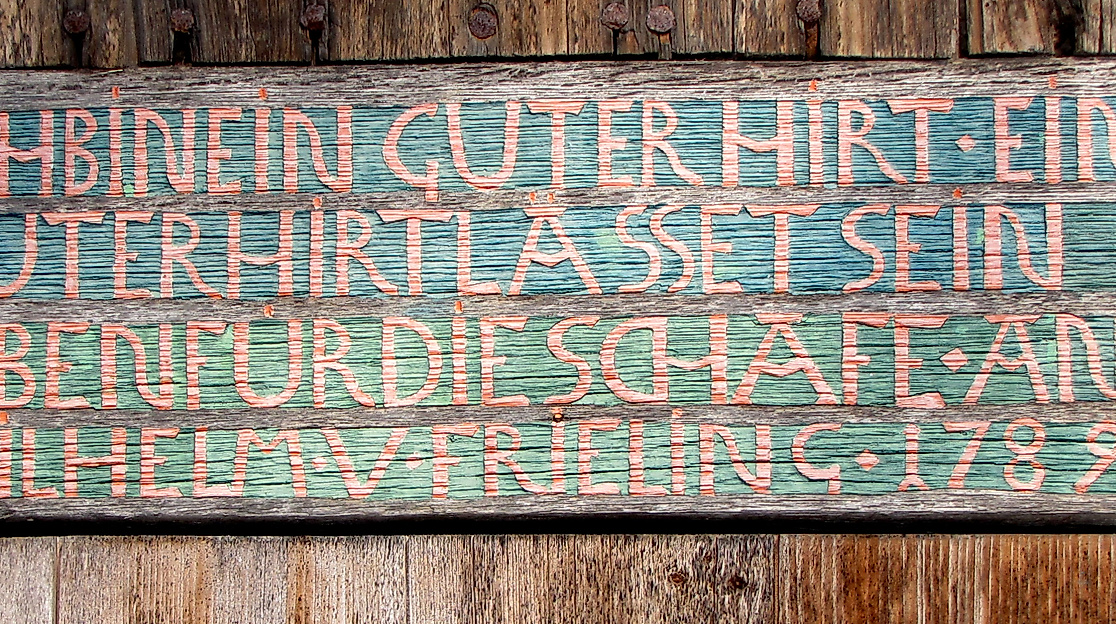 HBINEIN GUTER HIRT · EIN
UTERHIRTLÄSSET SEIN
BENFÜRDIESCHAFE · AN
ILHELM·V·FRIELING · 1789